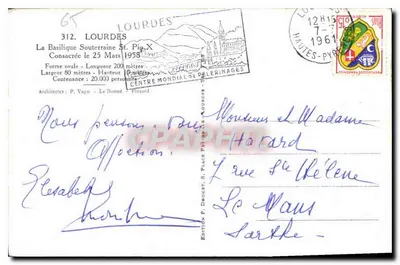 65
312. LOURDES
La Basilique Souterraine St. Pie X
Consacrée le 25 Mars 1958
Forme ovale - Longueur 200 mètres
Largeur 80 mètres - Hauteur 10 mètres
Contenance : 20.000 personnes
Architectes : P. Vago - Le Donné - Pinsard
LOURDES
CENTRE MONDIAL DE PELERINAGES
12H15
1961
HAUTES-PYR
Nous pensons à vous
Affection.
Elisabeth
Monsieur et Madame
Havard
7 rue Ste Hélène
Le Mans
Sarthe